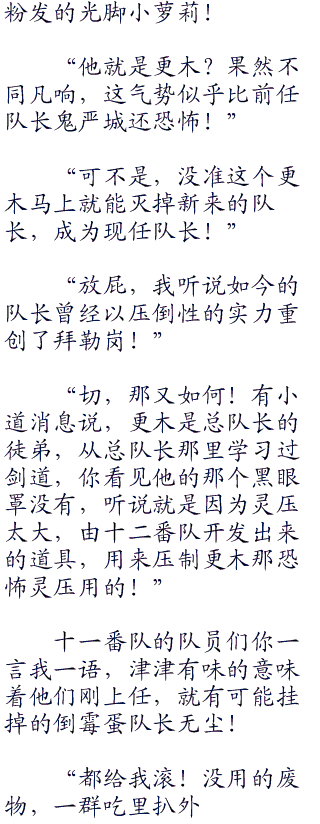 粉发的光脚小萝莉！
“他就是更木？果然不
同凡响，这气势似乎比前任
队长鬼严城还恐怖！”
“可不是，没准这个更
木马上就能灭掉新来的队
长，成为现任队长！”
“放屁，我听说如今的
队长曾经以压倒性的实力重
创了拜勒岗！”
“切，那又如何！有小
道消息说，更木是总队长的
徒弟，从总队长那里学习过
剑道，你看见他的那个黑眼
罩没有，听说就是因为灵压
太大，由十二番队开发出来
的道具，用来压制更木那恐
怖灵压用的！”
十一番队的队员们你一
言我一语，津津有味的意味
着他们刚上任，就有可能挂
掉的倒霉蛋队长无尘！
“都给我滚！没用的废
物，一群吃里扒外